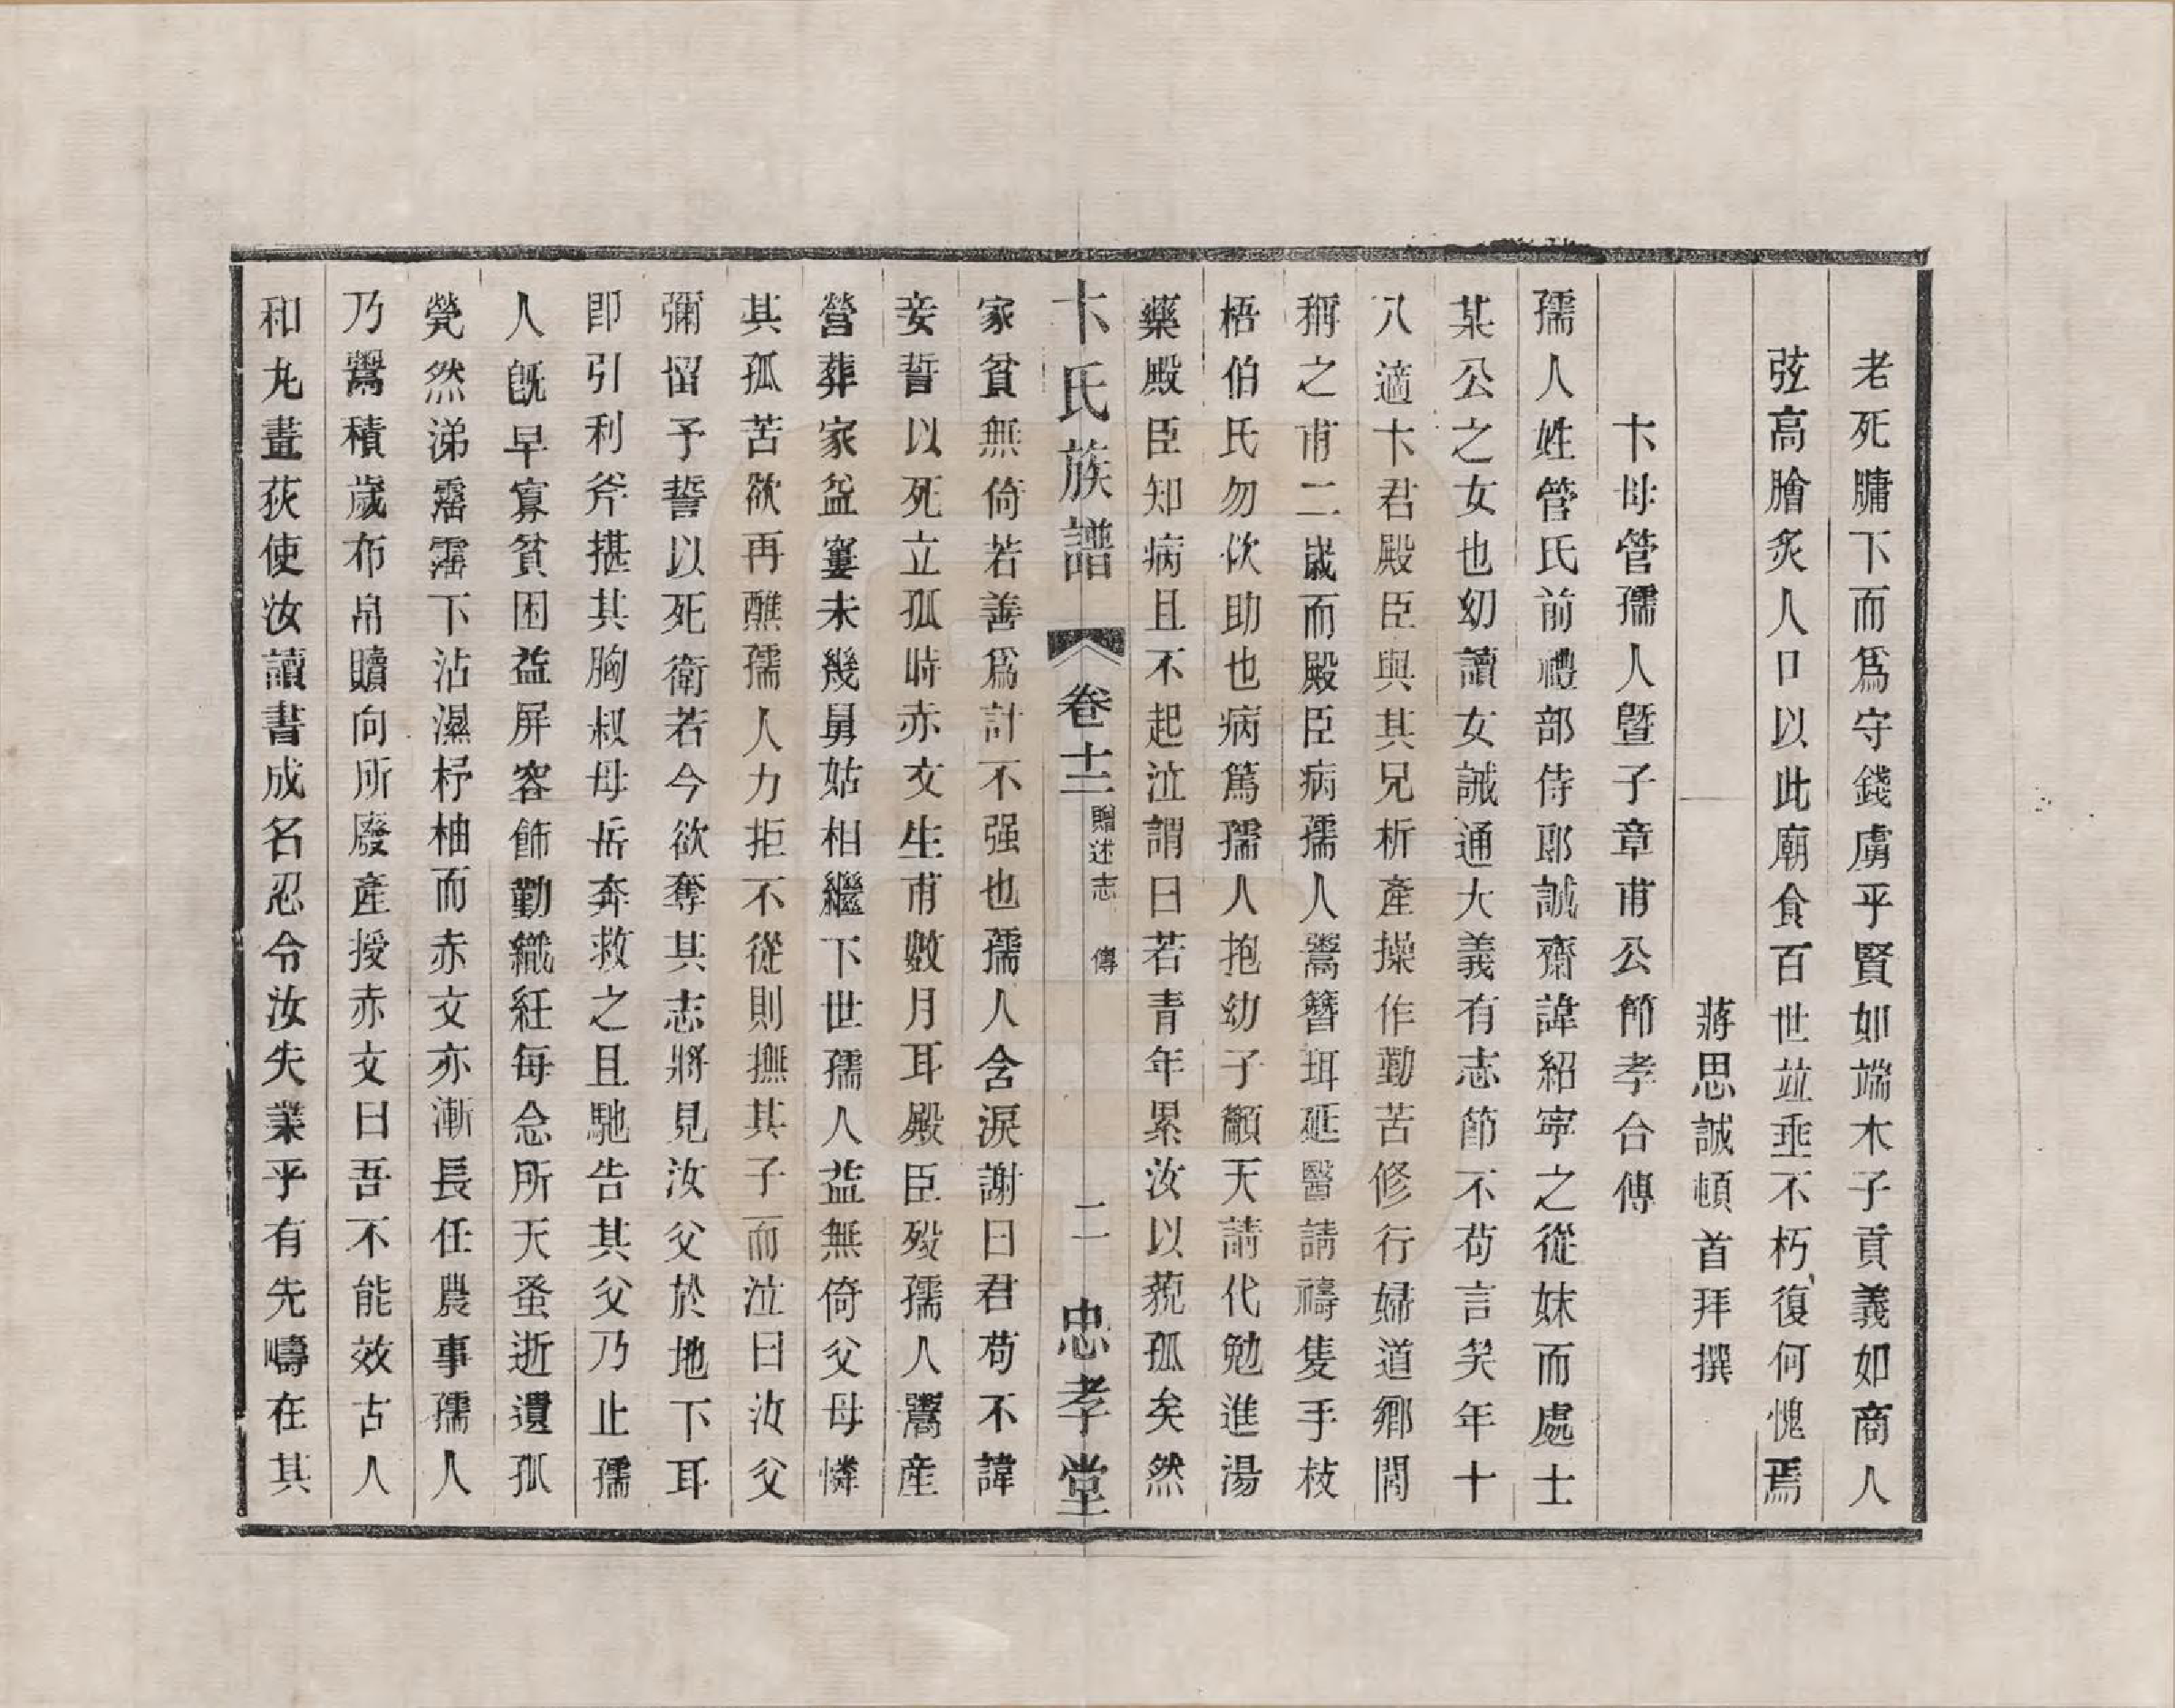 老死牖下而爲守錢虜乎賢如端木子貢義如商人
弦高膾炙人口以此廟食百世竝垂不朽復何愧焉
蔣思誠頓首拜撰
卞母管孺人曁子章甫公節孝合傳
孺人姓管氏前禮部侍郎誠齋諱紹寧之從妹而處士
某公之女也幼讀女誡通大義有志節不苟言笑年十
八適卞君殿臣與其兄析產操作勤苦修行婦道鄉閭
稱之甫二歲而殿臣病孺人鬻簪珥延醫請禱隻手枝
梧伯氏勿佽助也病篤孺人抱幼子籲天請代勉進湯
藥殿臣知病且不起泣謂曰若青年累汝以藐孤矣然
卞氏族譜 卷十二 贈述志 傳 二 忠孝堂
家貧無倚若善爲計不强也孺人含淚謝曰君苟不諱
妾誓以死立孤時赤文生甫數月耳殿臣歿孺人鬻產
營葬家益窶未幾舅姑相繼下世孺人益無倚父母憐
其孤苦欲再醮孺人力拒不從則撫其子而泣曰汝父
彌留予誓以死衛若今欲奪其志將見汝父於地下耳
即引利斧揕其胸叔母岳奔救之且馳告其父乃止孺
人旣早寡貧困益屏容飾勤織紝每念所天蚤逝遺孤
煢然涕霑霑下沾濕杼柚而赤文亦漸長任農事孺人
乃鬻積歲布帛贖向所廢產授赤文曰吾不能效古人
和丸畫荻使汝讀書成名忍令汝失業乎有先疇在其